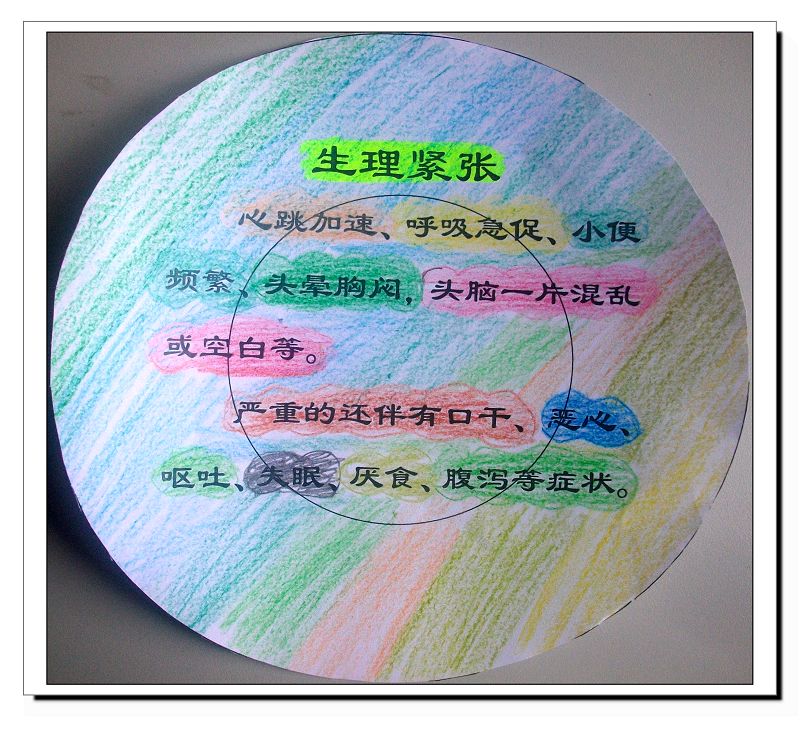 生理紧张
心跳加速、呼吸急促、小便
频繁、头晕胸闷，头脑一片混乱
或空白等。
严重的还伴有口干、恶心、
呕吐、失眠、厌食、腹泻等症状。